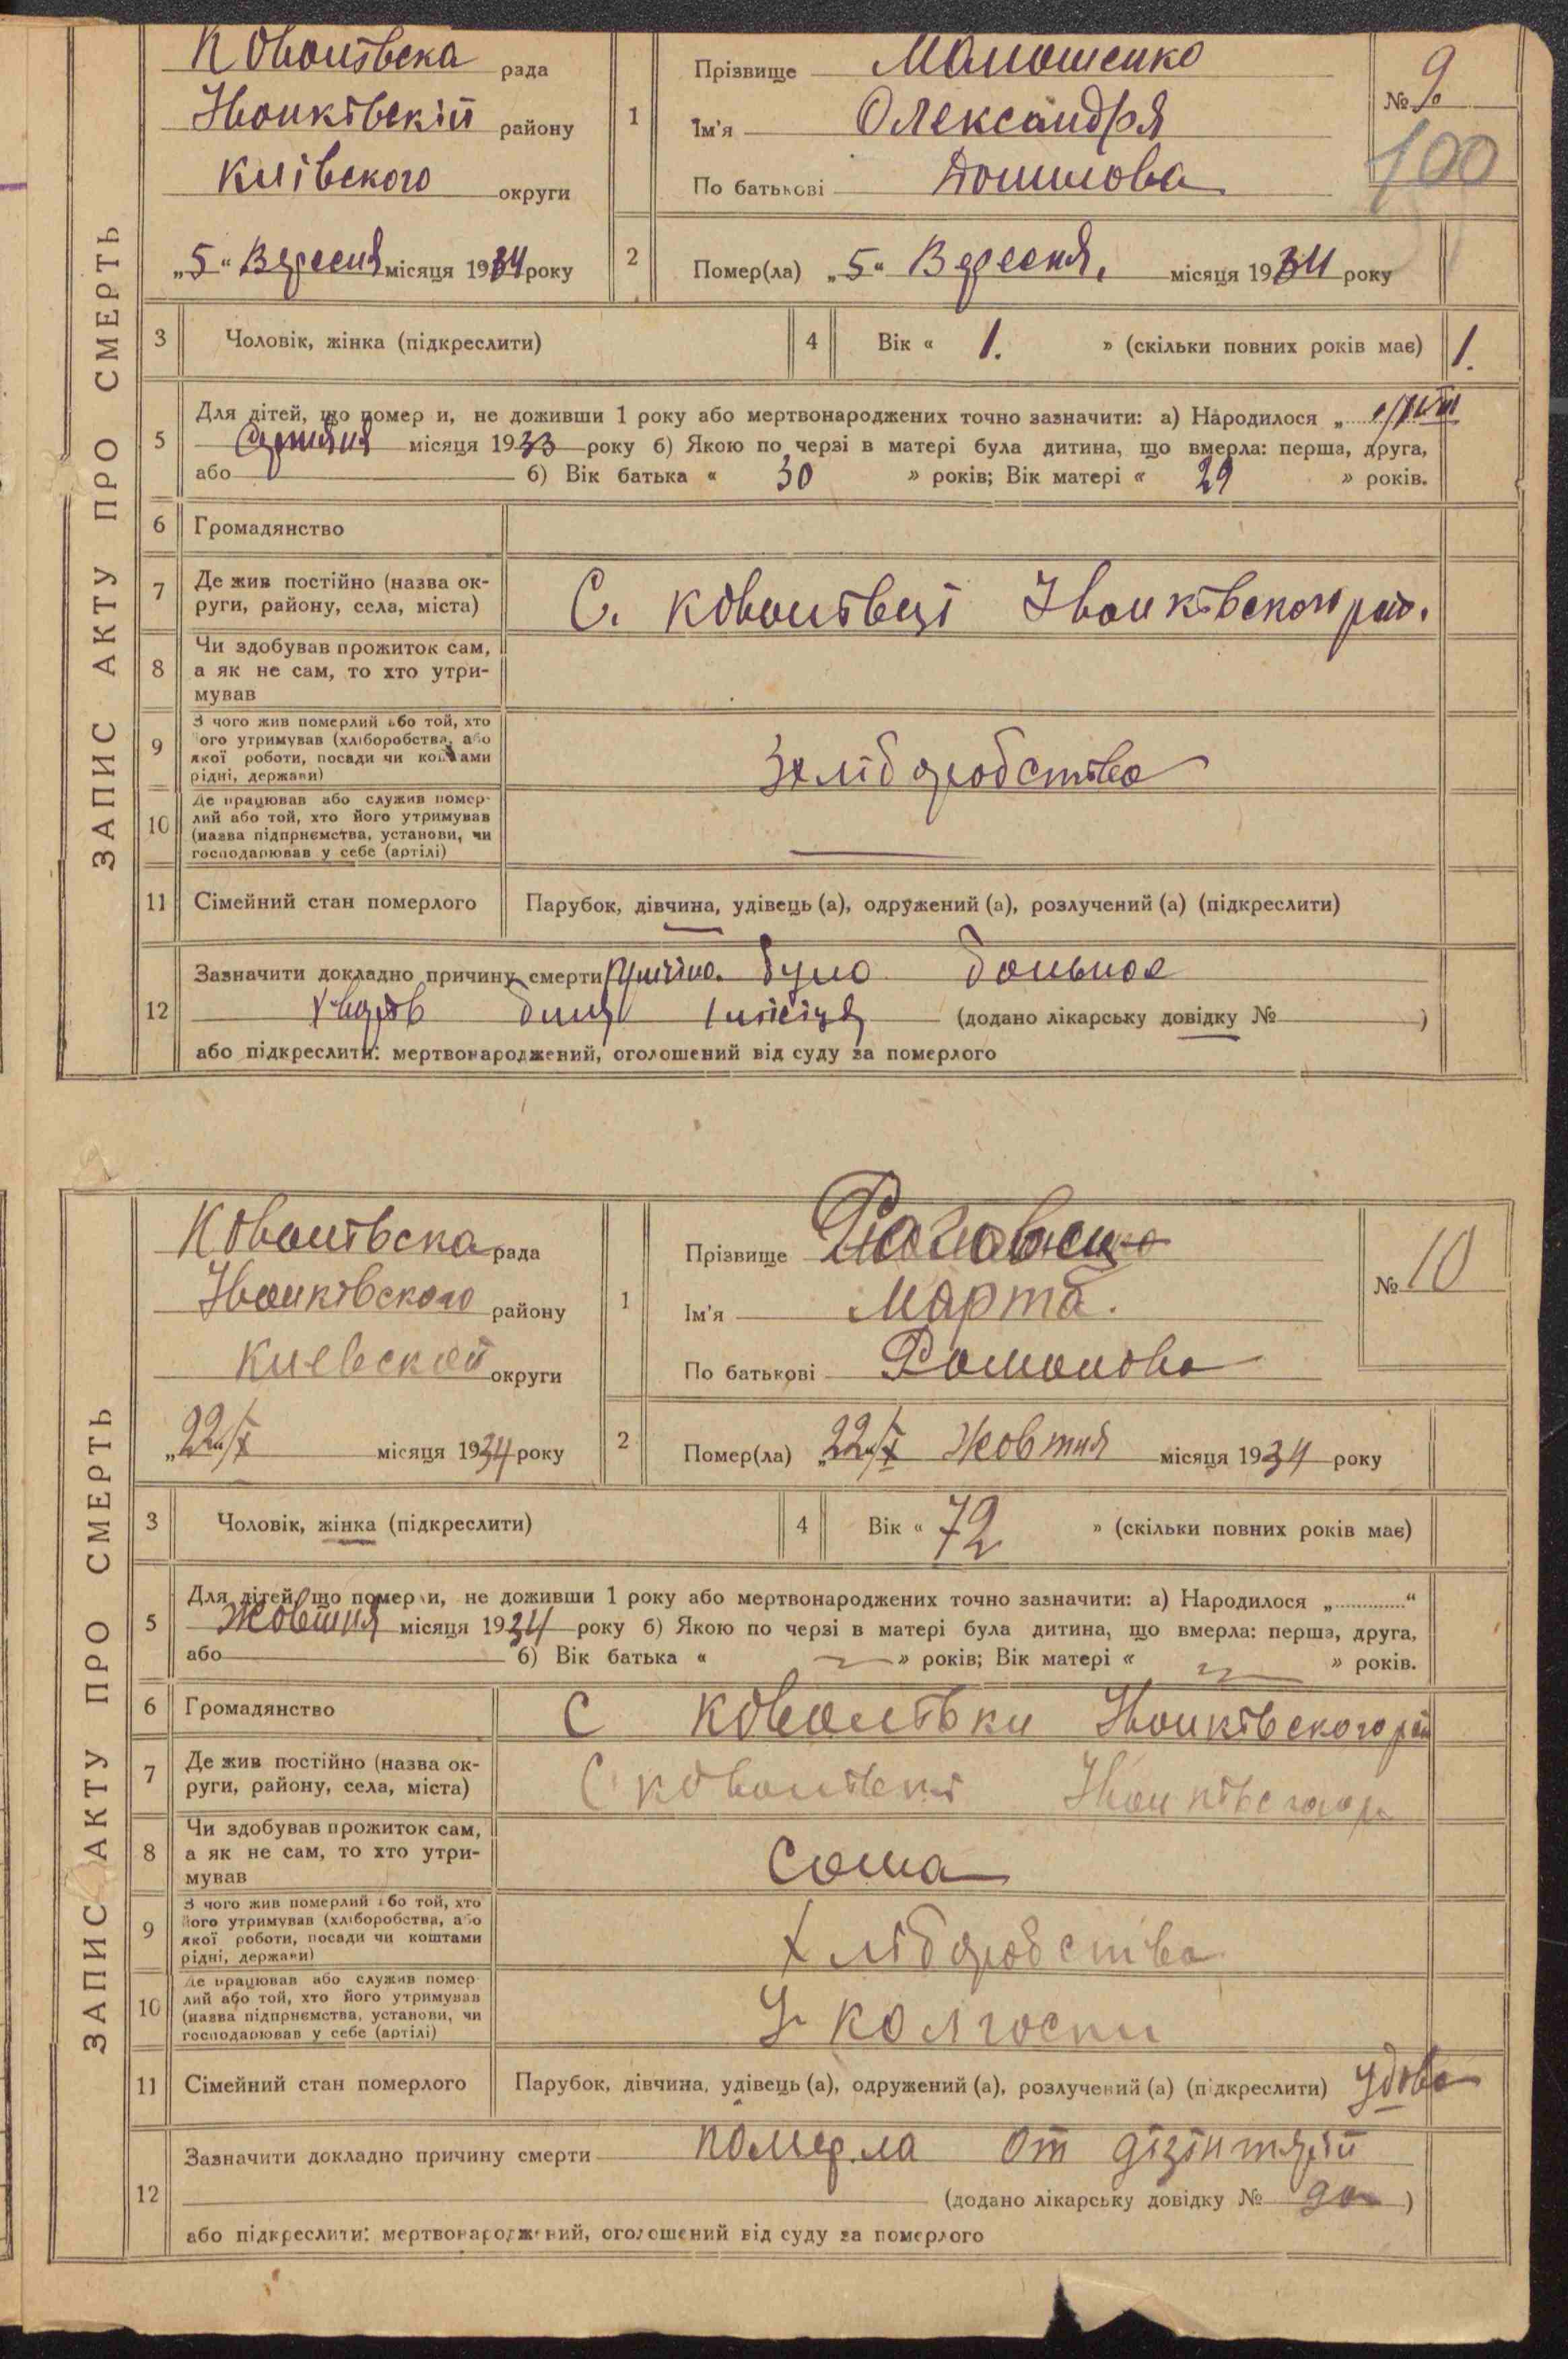 ЗАПИС АКТУ ПРО СМЕРТЬ
Ковалівська рада
Іванківский району
Київского округи
„5“ Вересня місяця 1934 року
1 Прізвище
Ім'я Олександря
По батькові
№ 9
100
2 Помер(ла) „5“ Вересня, місяця 1934 року
3 Чоловік, жінка (підкреслити)
4 Вік « 1. » (скільки повних років має) 1.
5 Для дітей, що померли, не доживши 1 року або мертвонароджених точно зазначити: а) Народилося „
місяця 1933 року б) Якою по черзі в матері була дитина, що вмерла: перша, друга,
або б) Вік батька « 30 » років; Вік матері « 29 » років.
6 Громадянство
7 Де жив постійно (назва ок-
руги, району, села, міста)
С. Ковалівці Іванківского рай.
8 Чи здобував прожиток сам,
а як не сам, то хто утри-
мував
9 З чого жив померлий або той, хто
його утримував (хліборобства, або
якої роботи, посади чи коштами
рідні, держави)
Зхліборобства
10 Де працював або служив помер-
лий або той, хто його утримував
(назва підприємства, установи, чи
господарював у себе (артілі)
11 Сімейний стан померлого
Парубок, дівчина, удівець (а), одружений (а), розлучений (а) (підкреслити)
12 Зазначити докладно причину смерти було больноя
(додано лікарську довідку № )
або підкреслити: мертвонароджений, оголошений від суду за померлого
ЗАПИС АКТУ ПРО СМЕРТЬ
Ковалівска рада
Іванківского району
Киевской округи
„22/X місяця 1934 року
1 Прізвище
Ім'я Марта.
По батькові Романова
№ 10
2 Помер(ла) „22/X Жовтня місяця 1934 року
3 Чоловік, жінка (підкреслити)
4 Вік « 72 » (скільки повних років має)
5 Для дітей, що померли, не доживши 1 року або мертвонароджених точно зазначити: а) Народилося „............“
Жовтня місяця 1934 року б) Якою по черзі в матері була дитина, що вмерла: перша, друга,
або б) Вік батька « » років; Вік матері « » років.
6 Громадянство
С Ковалівки Іванківского рай
7 Де жив постійно (назва ок-
руги, району, села, міста)
С Ковалівкі
8 Чи здобував прожиток сам,
а як не сам, то хто утри-
мував
Сама
9 З чого жив померлий або той, хто
його утримував (хліборобства, або
якої роботи, посади чи коштами
рідні, держави)
Хліборобства
10 Де працював або служив помер-
лий або той, хто його утримував
(назва підприємства, установи, чи
господарював у себе (артілі)
У колгоспи
11 Сімейний стан померлого
Парубок, дівчина, удівець (а), одружений (а), розлучений (а) (підкреслити) удова
12 Зазначити докладно причину смерти померла от дізінтярій
(додано лікарську довідку № )
або підкреслити: мертвонароджений, оголошений від суду за померлого